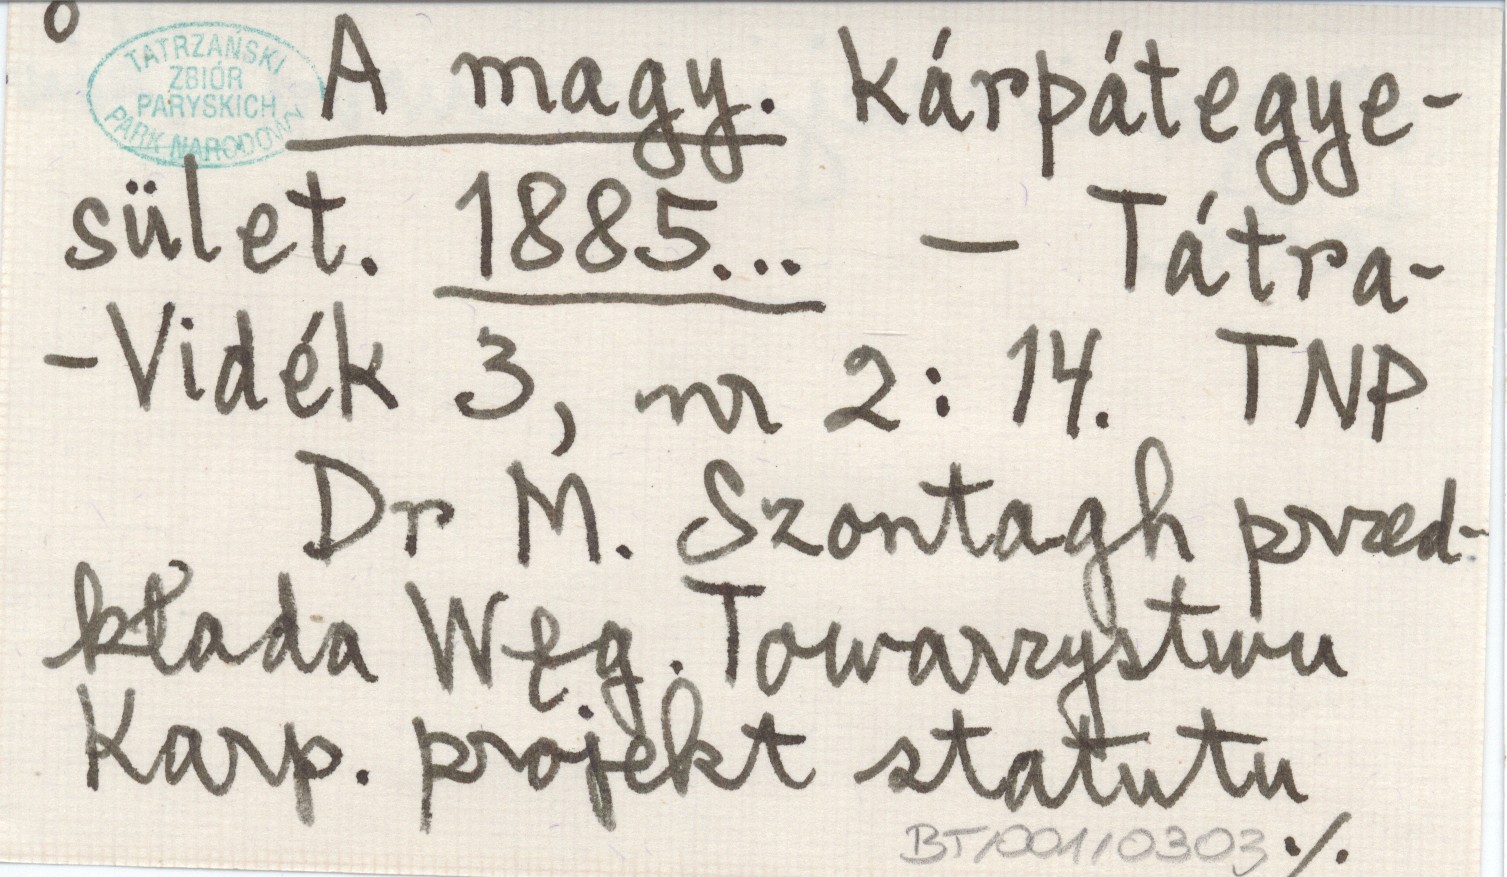 o
TATRZAŃSKI
ZBIÓR
PARYSKICH
PARK NARODOWY
A magy. kárpátegye-
sület. 1885... — Tátra-
-Vidék 3, nr 2: 14. TNP
Dr M. Szontagh przed-
kłada Węg. Towarzystwu
Karp. projekt statutu
BT/001/0303 ./.